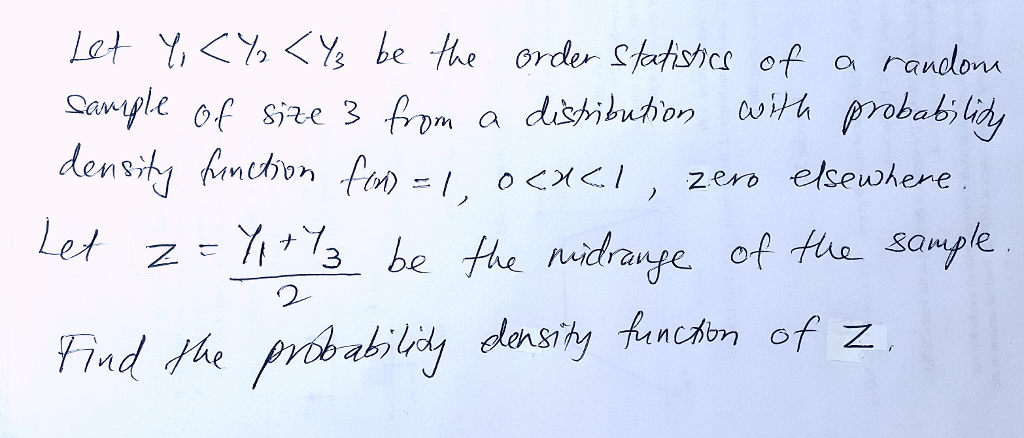 Let Y₁ < Y₂ < Y₃ be the order statistics of a random
sample of size 3 from a distribution with probability
density function f(x) = 1, 0 < x < 1, zero elsewhere.
Let Z = (Y₁ + Y₃)/2 be the midrange of the sample.
Find the probability density function of Z.